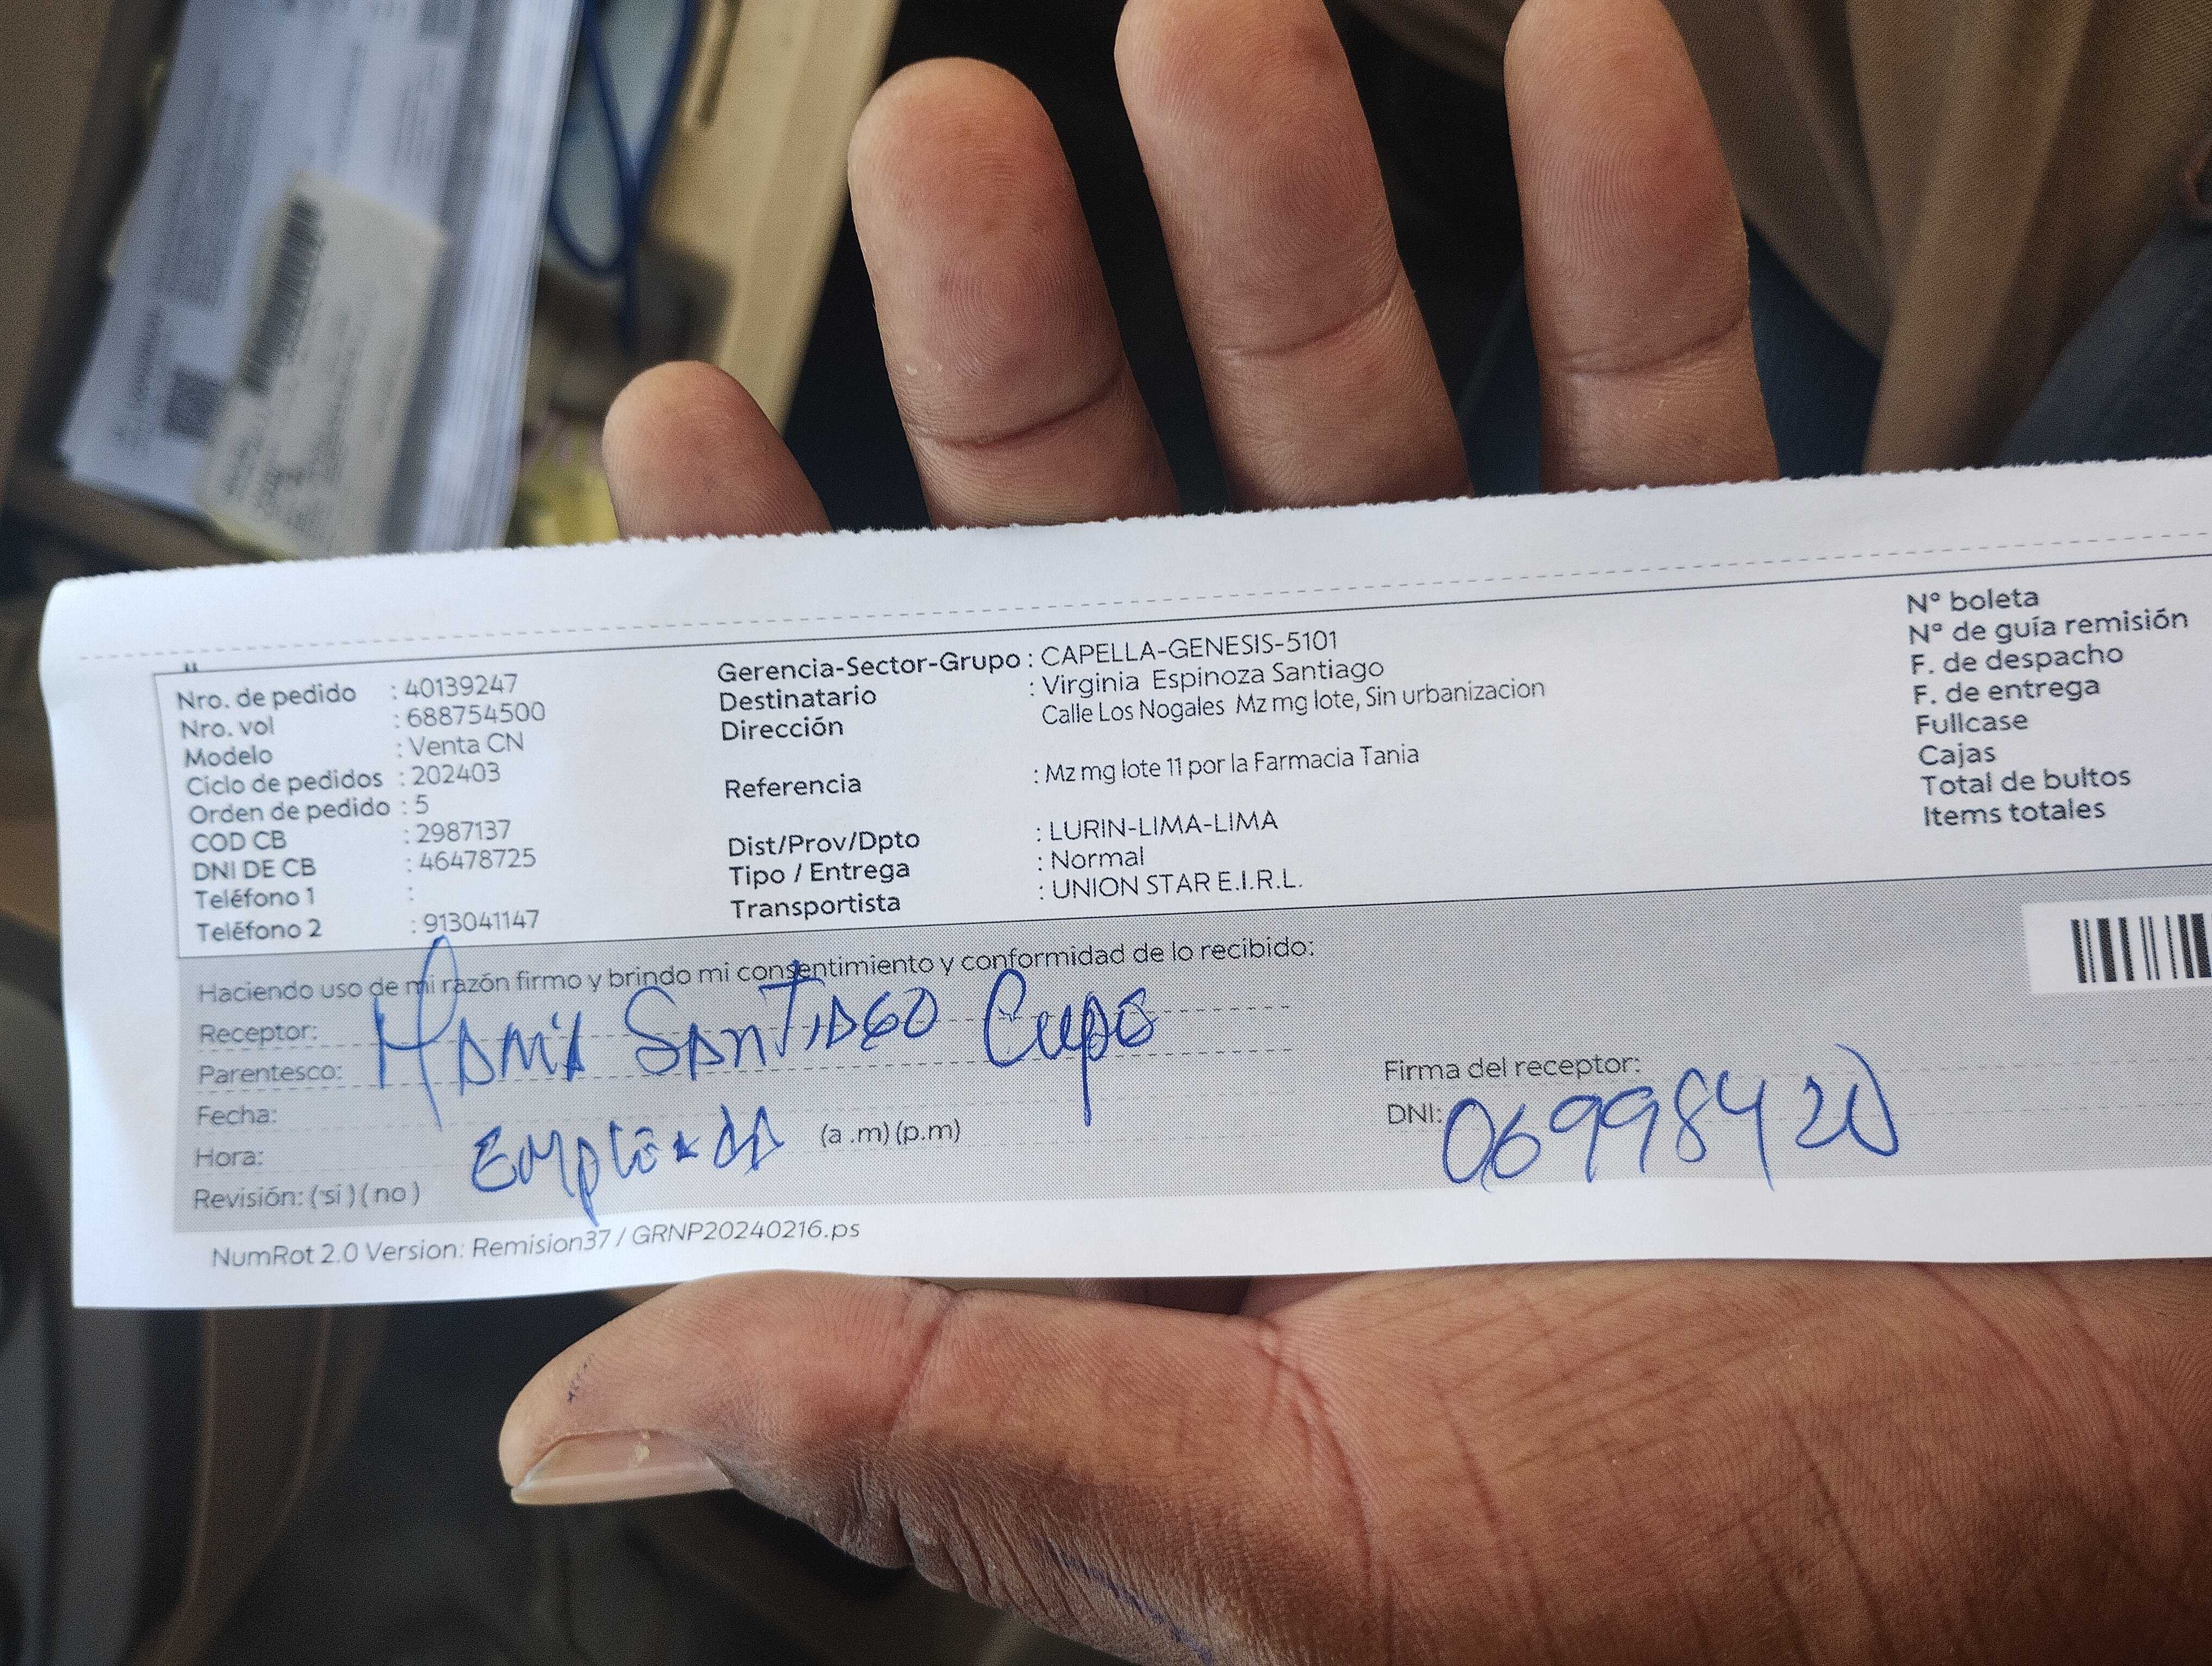 Nro. de pedido : 40139247
Nro. vol : 688754500
Modelo : Venta CN
Ciclo de pedidos : 202403
Orden de pedido : 5
COD CB : 2987137
DNI DE CB : 46478725
Teléfono 1 :
Teléfono 2 : 913041147
Gerencia-Sector-Grupo : CAPELLA-GENESIS-5101
Destinatario : Virginia Espinoza Santiago
Dirección Calle Los Nogales Mz mg lote, Sin urbanizacion
Referencia : Mz mg lote 11 por la Farmacia Tania
Dist/Prov/Dpto : LURIN-LIMA-LIMA
Tipo / Entrega : Normal
Transportista : UNION STAR E.I.R.L.
N° boleta
N° de guía remisión
F. de despacho
F. de entrega
Fullcase
Cajas
Total de bultos
Items totales
Haciendo uso de mi razón firmo y brindo mi consentimiento y conformidad de lo recibido:
Receptor: SANTIAGO
Parentesco:
Fecha:
Hora: (a .m) (p.m)
Revisión: ( si ) ( no )
Firma del receptor:
DNI: 06998420
NumRot 2.0 Version: Remision37 / GRNP20240216.ps